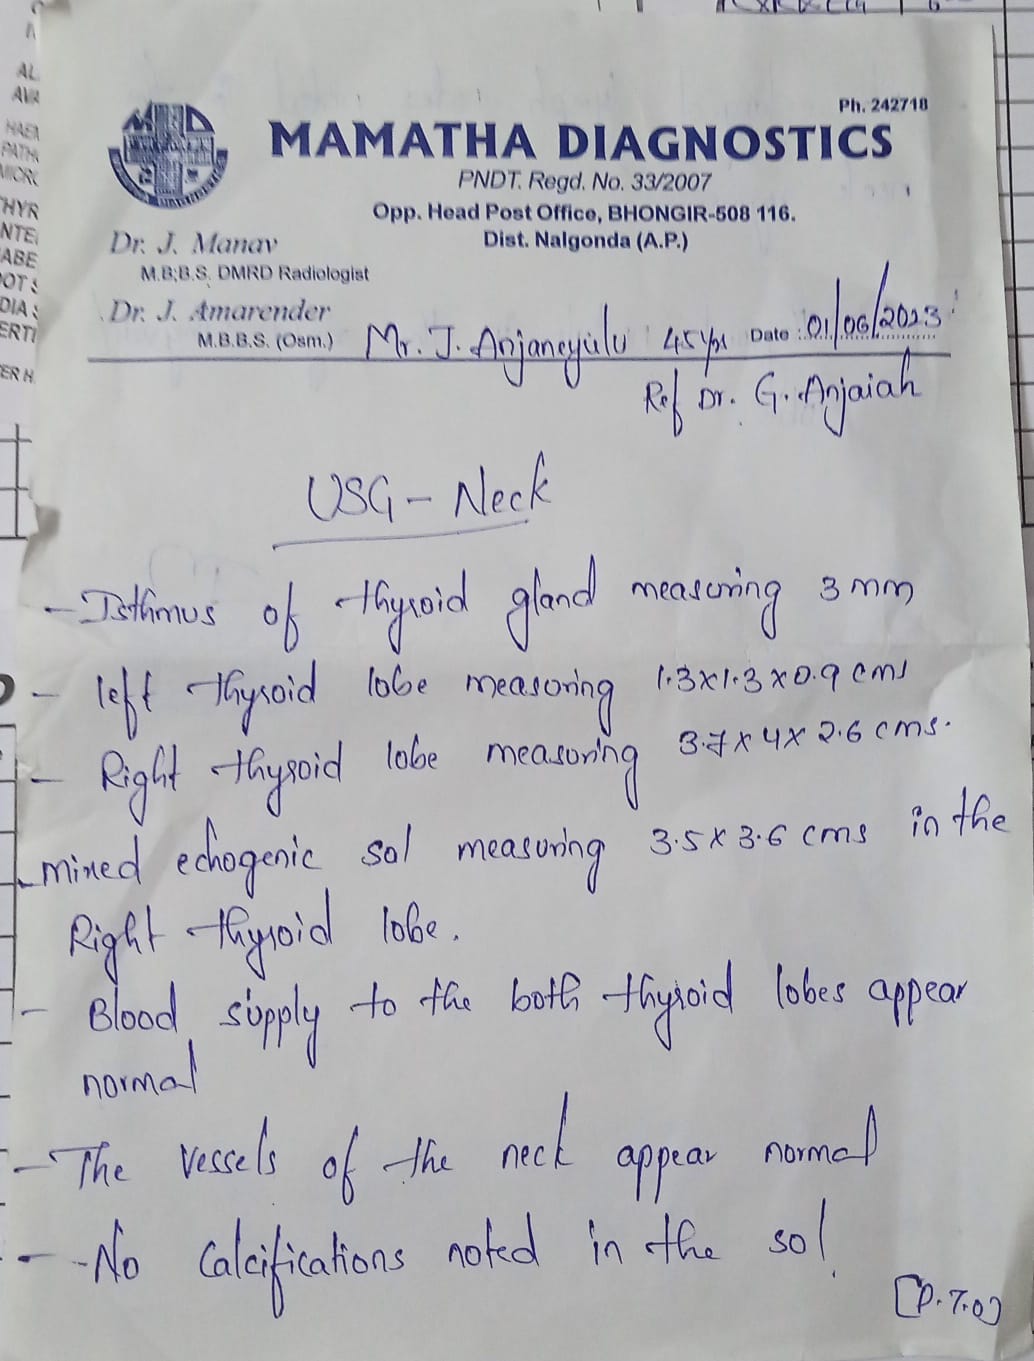 Ph. 242718
MAMATHA DIAGNOSTICS
PNDT. Regd. No. 33/2007
Opp. Head Post Office, BHONGIR-508 116.
Dist. Nalgonda (A.P.)
Dr. J. Manav
M.B;B.S. DMRD Radiologist
Dr. J. Amarender
M.B.B.S. (Osm.)
Mr. J. Anjaneyulu 45yrs Date : 01/06/2023
Ref Dr. G. Anjaiah
USG - Neck
- Isthmus of thyroid gland measuring 3 mm
- left thyroid lobe measuring 1.3x1.3x0.9 cms
- Right thyroid lobe measuring 3.7x4x2.6 cms.
- mixed echogenic sol measuring 3.5x3.6 cms in the
Right thyroid lobe.
- Blood supply to the both thyroid lobes appear
normal
- The vessels of the neck appear normal
- No calcifications noted in the sol
[P.T.O]